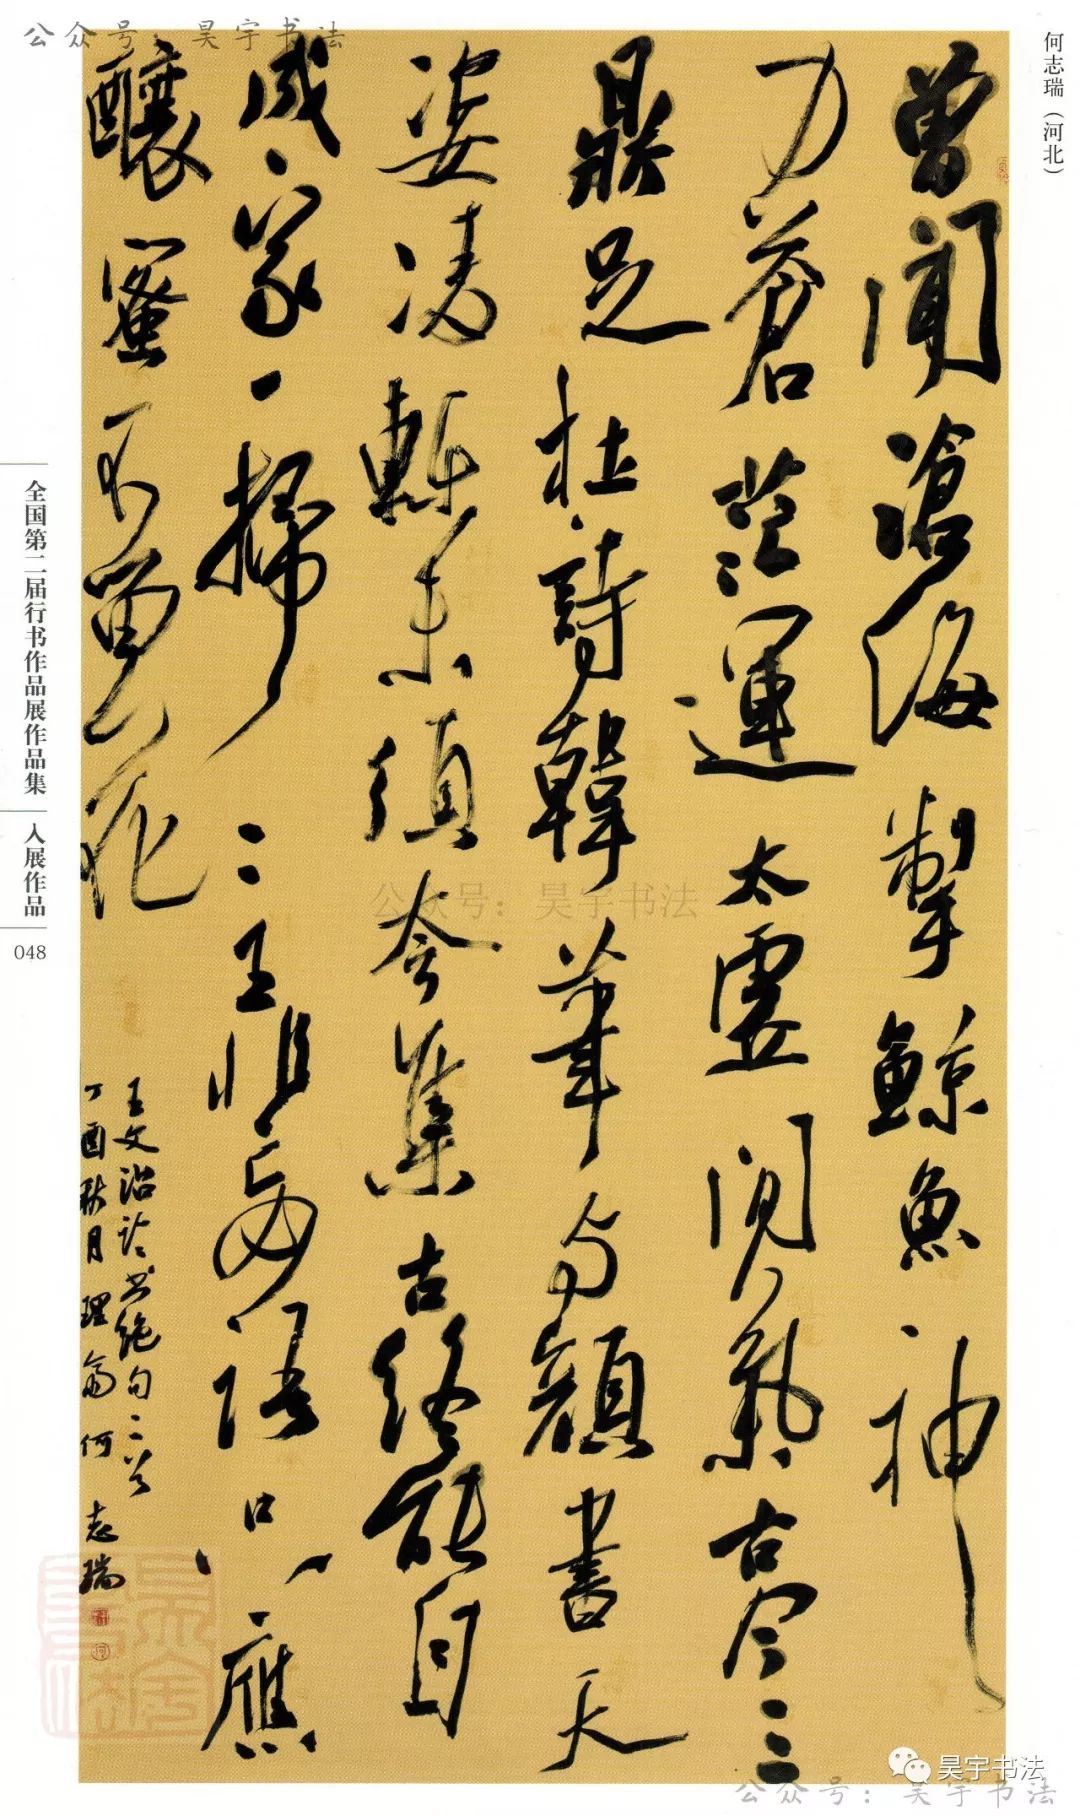 何志瑞（河北）
曾聞滄海掣鯨魚神
力蒼茫運太虛間氣古今三
鼎足杜詩韓筆与顏書天
姿凌轢未須夸集古終能自
成家一掃二王非妄語只應
釀蜜不留花
王文治论书絶句二首
丁酉秋月理斋何志瑞
全国第二届行书作品展作品集
入展作品
048
公众号：昊宇书法
公众号：昊宇书法
昊宇书法
公众号：昊宇书法